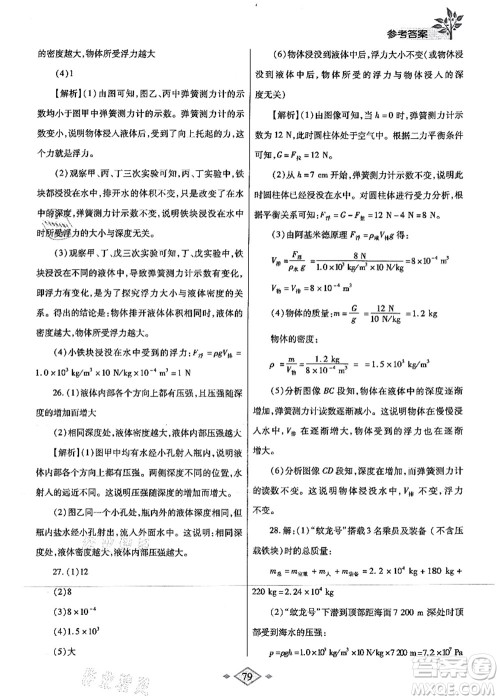 参考答案
的密度越大,物体所受浮力越大
(4)1
【解析】(1)由图可知,图乙、丙中弹簧测力计的示
数均小于图甲中弹簧测力计的示数。弹簧测力计的示
数变小,说明物体浸入液体后受到向上托起的力,这个
力就是浮力。
(2)观察甲、丙、丁三次实验可知,丙、丁实验中,铁
块的体积不变,排开水的体积不变,只是改变了在水中
中的深度,弹簧测力计示数不变,说明物体浸没在水中
时所受浮力的大小与深度无关。
(3)观察甲、丁、戊三次实验可知,丁、戊实验中,铁
块浸没在不同的液体中,导致弹簧测力计示数有变化,
即浮力有变化,其是为了探究浮力大小与液体密度的关
系。得出的结论是:物体排开液体体积相同时,液体密
度越大,物体所受浮力越大。
(4)小铁块浸没在水中的浮力:F浮=ρgV铁块=
1.0×10³ kg/m³×10 N/kg×10⁻⁴ m³=1 N
26.(1)液体内部各个方向上都有压强,且压强随深
度的增大而增大
(2)相同深度处,液体密度越大,液体内部压强越大
【解析】(1)由题图甲可知,水可从小孔射入瓶中,
而且深度越大水喷射越急。这个现象说明液体内部各
个方向上都有压强,且压强随深度的增大而增大。
(2)同一个小孔,即深度相同时,由图乙、丙可知,但
瓶内盐水经小孔射出时,射得更远一些,这说明:相同深
度处,液体密度越大,液体内部压强越大。
27.(1)12
(2)8
(3)8×10⁻⁴
(4)1.5×10³
(5)大
(6)物体浸没在液体中时,物体所受的浮力与深度
无关(浮力大小不变)(或当物体的密度大于液体密度,浸
没在液体中时,物体所受的浮力与物体浸入液体的深
度无关)
【解析】(1)由图像可知,当h=0时,弹簧测力计示
数为12 N,此时圆柱体处于空气中。根据二力平衡条件
可知,G=F拉=12 N。
(2)当h=7 cm开始,弹簧测力计示数不变,说明此
时圆柱体已经浸没在水中。对圆柱体进行受力分析,
可知F浮=G-F拉=12 N-4 N=8 N。
(3)由阿基米德原理F浮=ρ水V排g得:
V排=F浮/ρ水g=8 N/1.0×10³ kg/m³×10 N/kg=8×10⁻⁴ m³
V物=V排=8×10⁻⁴ m³
(4)物体的质量:m=G/g=12 N/10 N/kg=1.2 kg
物体的密度:
ρ=m/V物=1.2 kg/8×10⁻⁴ m³=1.5×10³ kg/m³。
(5)分析图像BC段可知,物体在液体中的深度逐渐
增大,弹簧测力计读数逐渐减小。这说明物体在慢慢浸
入水中时,V排逐渐变大,所受到的浮力也逐渐变大。
(6)分析图像CD段可知,物体浸没在液体中时,深
度逐渐增大,V排不变,浮力不变。此时弹簧测力计
的读数不变。
28.解:(1)“蛟龙号”搭载3名乘员及装备(不含两
压载铁块)时的总质量:
m总=m空+m装+m人=22×10³ kg+220 kg+
220 kg=2.24×10⁴ kg
(2)“蛟龙号”下潜到马里亚纳海沟7 200 m深处时顶
部受到海水的压强:
p=ρgh=1.0×10³ kg/m³×10 N/kg×7 200 m=7.2×10⁷ Pa
79